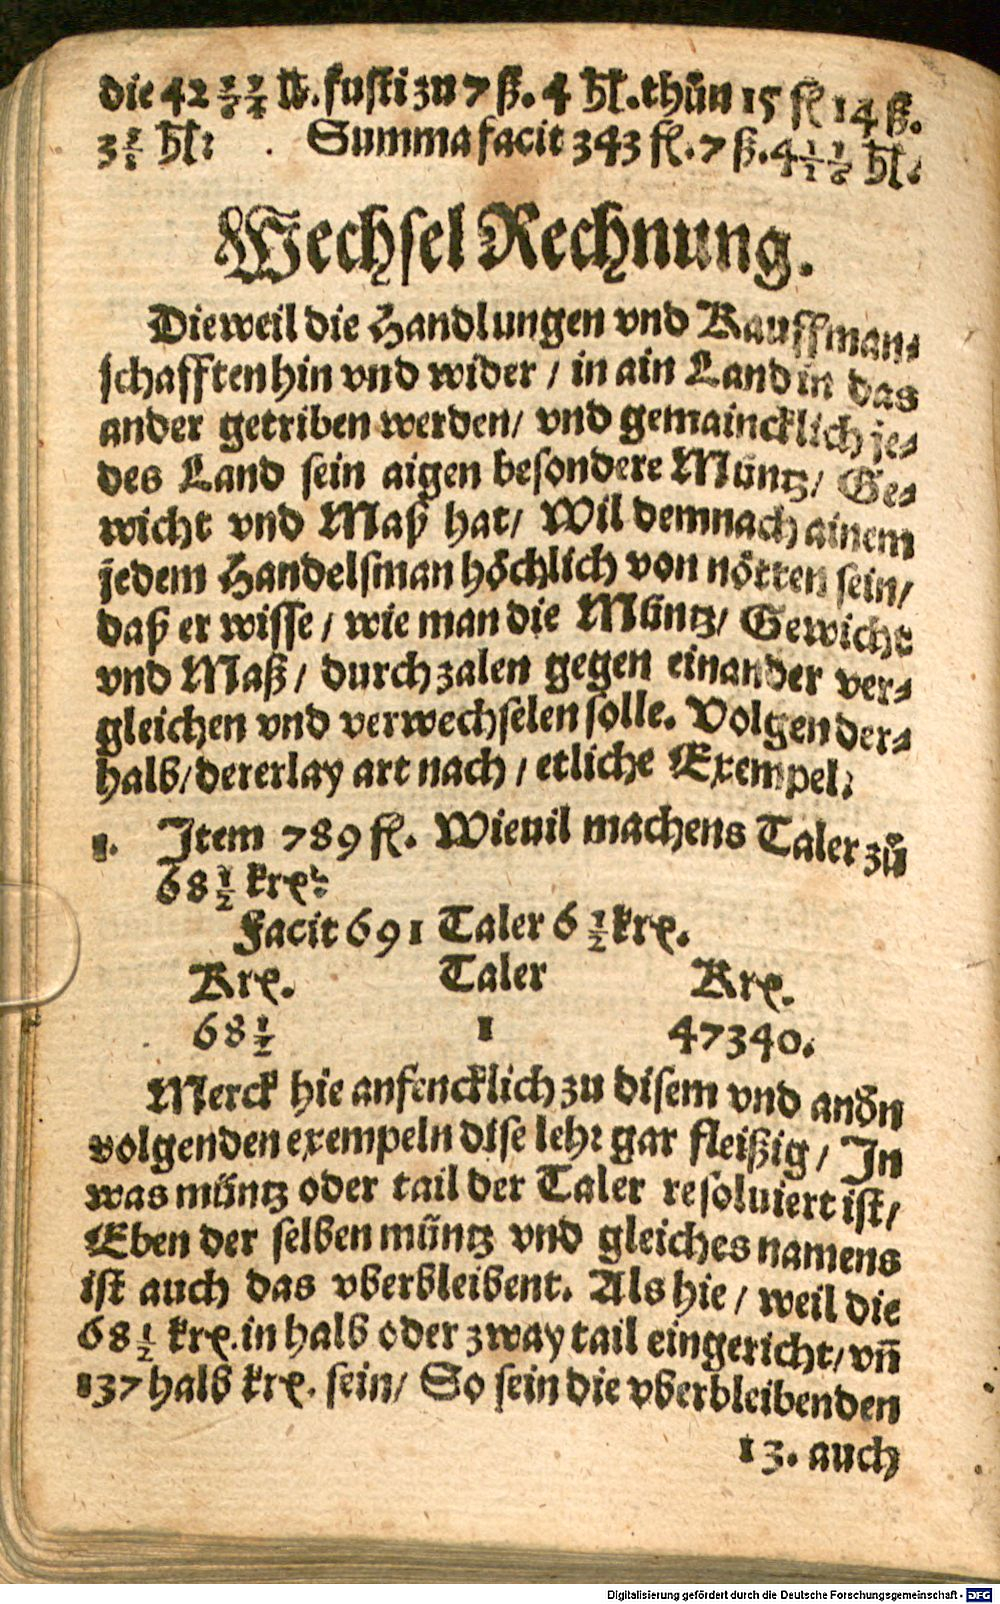 die 42 fusti zu 7 ß. 4 hl. thůn 15 fl 14 ß.
3 hl: Summa facit 343 fl. 7 ß. 4 hl.
Wechsel Rechnung.
Dieweil die Handlungen vnd Kauffman-
schafften hin vnd wider / in ain Land in das
ander getriben werden / vnd gemaincklich je-
des Land sein aigen besondere Müntz / Ge-
wicht vnd Maß hat / Wil demnach ainem
jedem Handelsman höchlich von nötten sein /
daß er wisse / wie man die Müntz / Gewicht
vnd Maß / durch zalen gegen einander ver-
gleichen vnd verwechselen solle. Volgen der-
halb / dererlay art nach / etliche Exempel:
1. Item 789 fl. Wieuil machens Taler zů
68 1/2 krx:
Facit 691 Taler 6 1/2 krx.
Krx. Taler Krx.
68 1/2 1 47340.
Merck hie anfencklich zu disem vnd andn
volgenden exempeln dise lehr gar fleißig / In
was müntz oder tail der Taler resoluiert ist /
Eben der selben müntz vnd gleiches namens
ist auch das vberbleibent. Als hie / weil die
68 1/2 krx. in halb oder zway tail eingericht / vn̄
137 halb krx. sein / So sein die vberbleibenden
13. auch
Digitalisierung gefördert durch die Deutsche Forschungsgemeinschaft - DFG